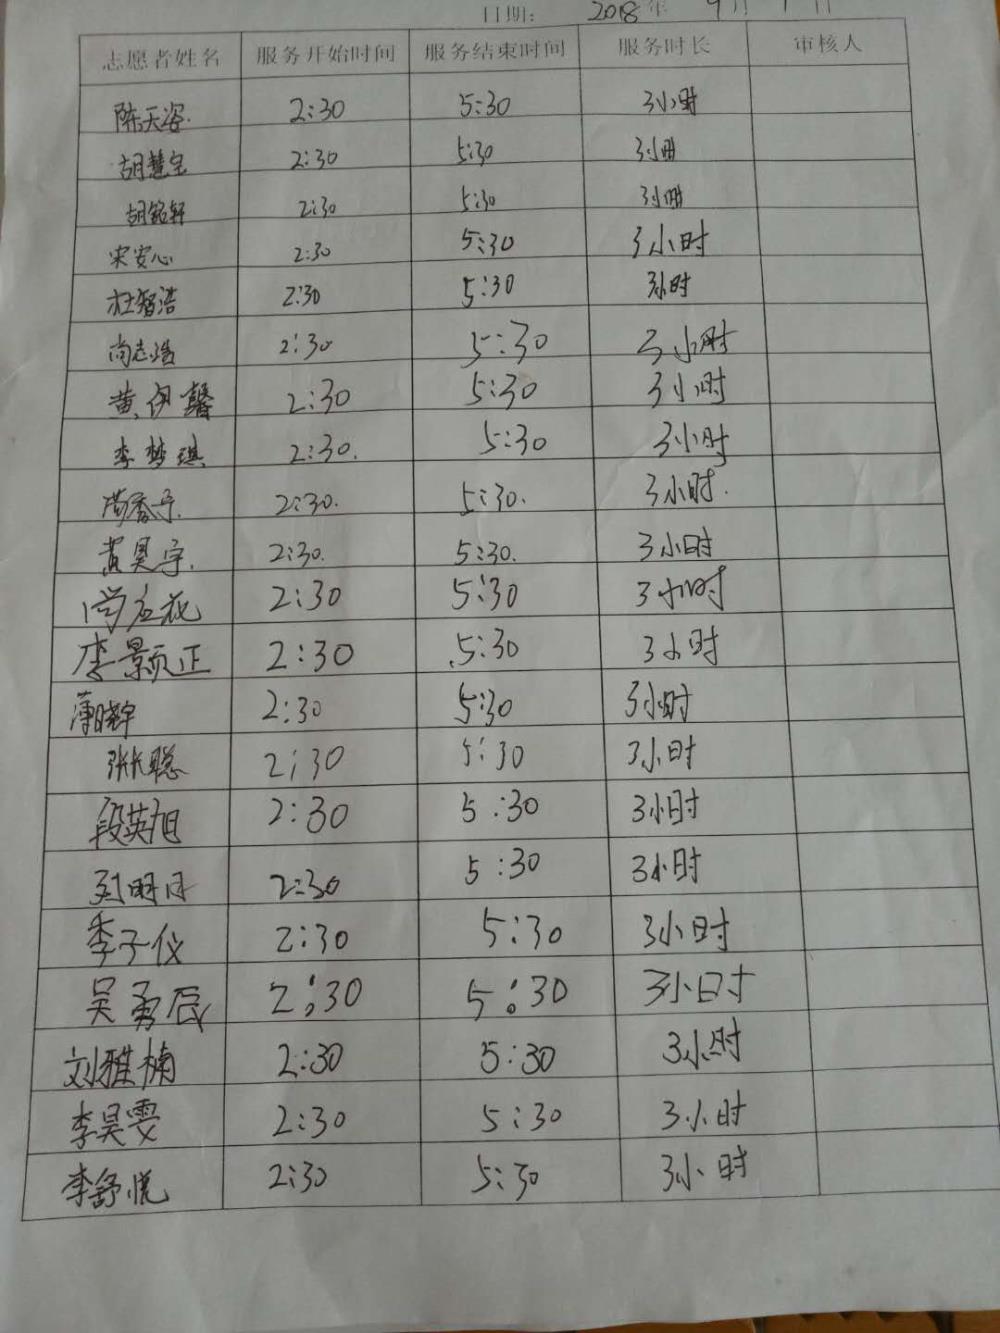 日期: 2018年 9月 1日
志愿者姓名 服务开始时间 服务结束时间 服务时长 审核人
陈天姿. 2:30 5:30 3小时
胡慧宝 2:30 5:30 3小时
胡铭轩 2:30 5:30 3小时
宋安心 2:30 5:30 3小时
杜智浩 2:30 5:30 3小时
尚志浩 2:30 5:30 3小时
黄伊馨 2:30 5:30 3小时
李梦琪 2:30. 5:30 3小时
2:30. 5:30. 3小时.
黄昊宇. 2:30. 5:30. 3小时
2:30 5:30 3小时
李颢正 2:30 5:30 3小时
薄晓宇 2:30 5:30 3小时
张长聪 2:30 5:30 3小时
段英旭 2:30 5:30 3小时
刘明月 2:30 5:30 3小时
季子仪 2:30 5:30 3小时
吴勇辰 2:30 5:30 3小时
刘雅楠 2:30 5:30 3小时
李昊雯 2:30 5:30 3小时
李舒悦 2:30 5:30 3小时